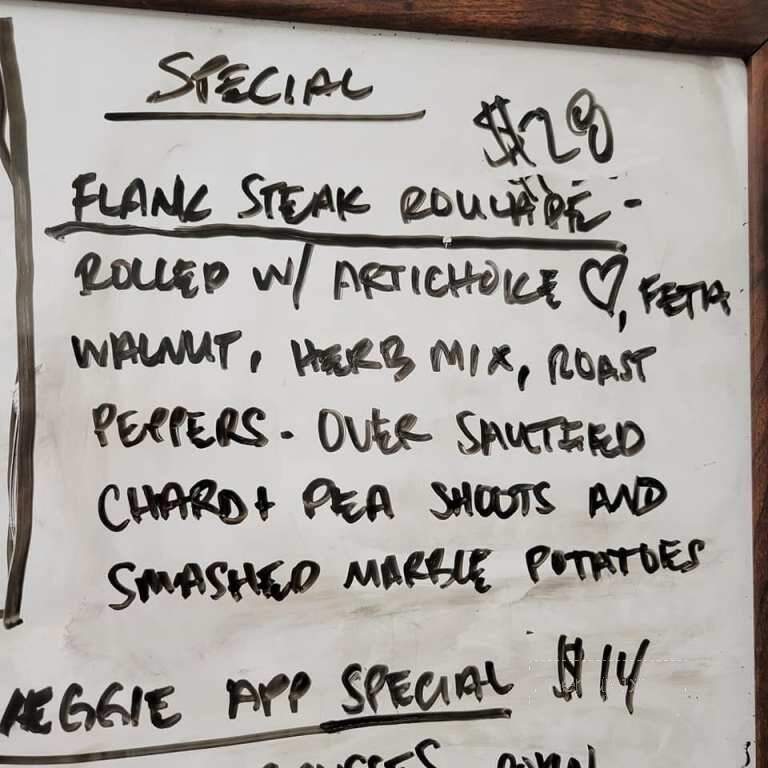 SPECIAL
$28
FLANK STEAK ROULADE -
ROLLED W/ ARTICHOKE ♡, FETA
WALNUT, HERB MIX, ROAST
PEPPERS - OVER SAUTEED
CHARD + PEA SHOOTS AND
SMASHED MARBLE POTATOES
VEGGIE APP SPECIAL $14